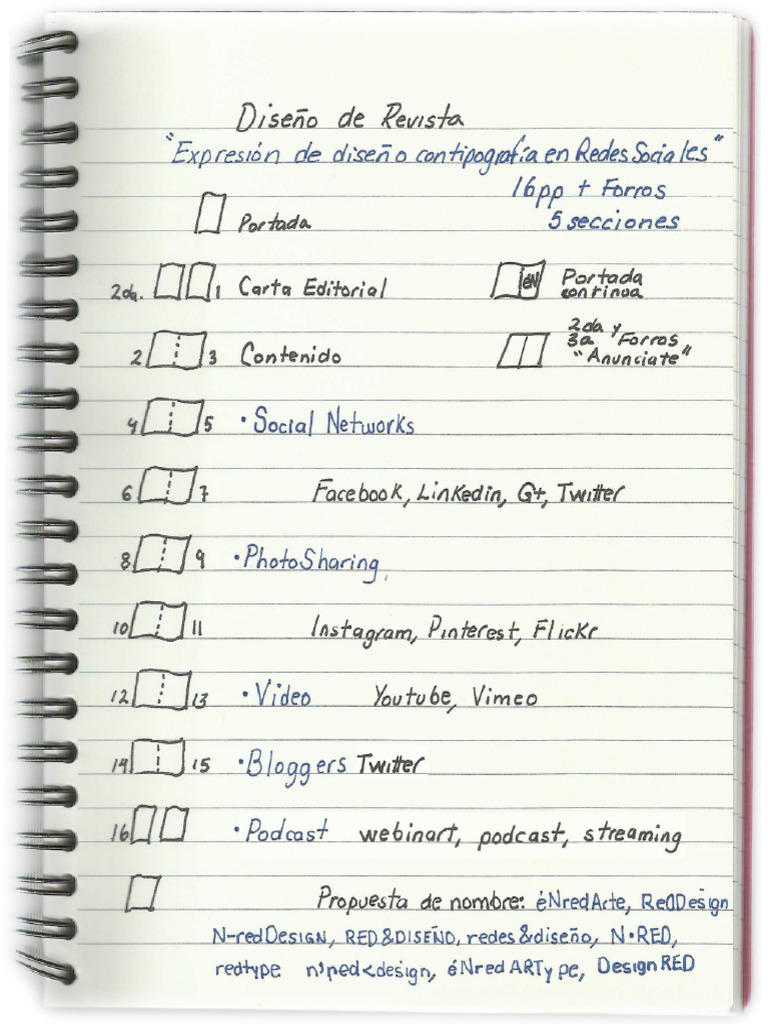 Diseño de Revista
"Expresión de diseño con tipografía en Redes Sociales"
16pp + Forros
5 secciones
Portada
2da. 1 Carta Editorial
éN Portada continua
2 3 Contenido
2da y 3a Forros "Anunciate"
4 5 • Social Networks
6 7 Facebook, Linkedin, G+, Twitter
8 9 • PhotoSharing
10 11 Instagram, Pinterest, Flickr
12 13 • Video Youtube, Vimeo
14 15 • Bloggers Twitter
16 • Podcast webinart, podcast, streaming
Propuesta de nombre: éNredArte, RedDesign
N-redDESIGN, RED&DISEÑO, redes&diseño, N•RED,
redtype design, éNredARType, DesignRED